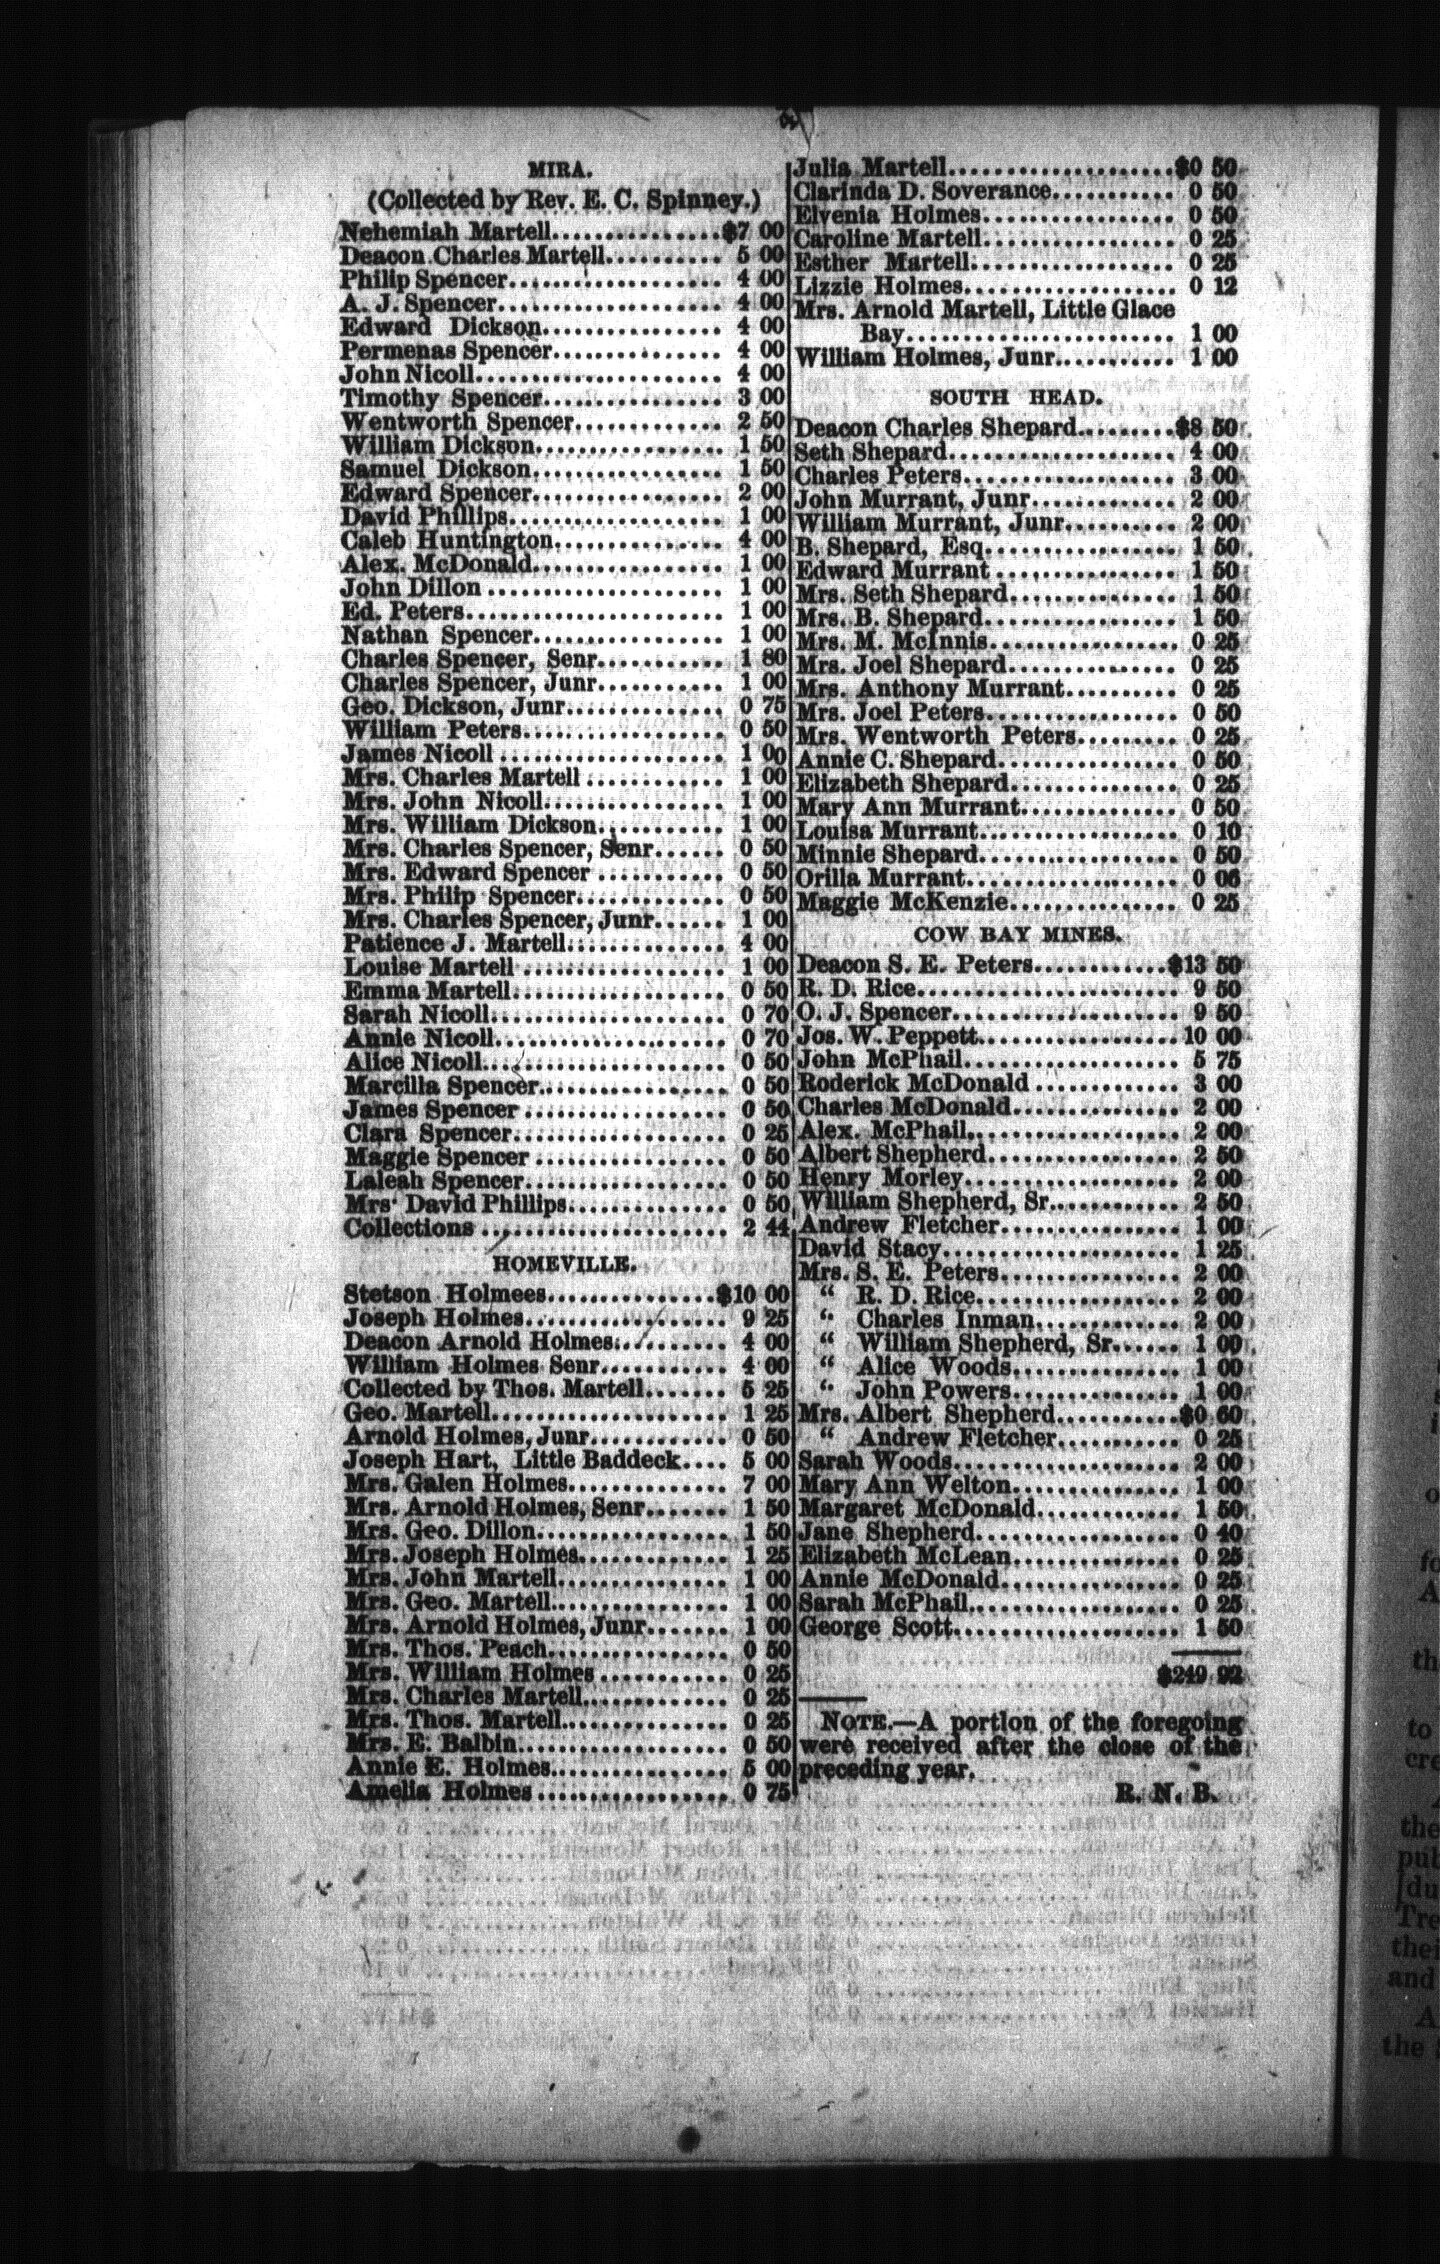 MIRA.
(Collected by Rev. E. C. Spinney.)
Nehemiah Martell................$7 00
Deacon Charles Martell.......... 5 00
Philip Spencer.................... 4 00
A. J. Spencer..................... 4 00
Edward Dickson................. 4 00
Permenas Spencer................ 4 00
John Nicoll....................... 4 00
Timothy Spencer................. 3 00
Wentworth Spencer.............. 2 50
William Dickson.................. 1 50
Samuel Dickson.................. 1 50
Edward Spencer.................. 2 00
David Phillips.................... 1 00
Caleb Huntington................ 4 00
Alex. McDonald.................. 1 00
John Dillon ...................... 1 00
Ed. Peters........................ 1 00
Nathan Spencer.................. 1 00
Charles Spencer, Senr............ 1 80
Charles Spencer, Junr............ 1 00
Geo. Dickson, Junr............... 0 75
William Peters................... 0 50
James Nicoll ..................... 1 00
Mrs. Charles Martell ............. 1 00
Mrs. John Nicoll................. 1 00
Mrs. William Dickson............ 1 00
Mrs. Charles Spencer, Senr....... 0 50
Mrs. Edward Spencer ............ 0 50
Mrs. Philip Spencer.............. 0 50
Mrs. Charles Spencer, Junr....... 1 00
Patience J. Martell............... 4 00
Louise Martell ................... 1 00
Emma Martell.................... 0 50
Sarah Nicoll...................... 0 70
Annie Nicoll...................... 0 70
Alice Nicoll....................... 0 50
Marcilla Spencer.................. 0 50
James Spencer ................... 0 50
Clara Spencer.................... 0 25
Maggie Spencer .................. 0 50
Laleah Spencer................... 0 50
Mrs· David Phillips............... 0 50
Collections ....................... 2 44
HOMEVILLE.
Stetson Holmees................$10 00
Joseph Holmes................... 9 25
Deacon Arnold Holmes.......... 4 00
William Holmes Senr............ 4 00
Collected by Thos. Martell....... 5 25
Geo. Martell...................... 1 25
Arnold Holmes, Junr............. 0 50
Joseph Hart, Little Baddeck.... 5 00
Mrs. Galen Holmes............... 7 00
Mrs. Arnold Holmes, Senr....... 1 50
Mrs. Geo. Dillon.................. 1 50
Mrs. Joseph Holmes.............. 1 25
Mrs. John Martell................ 1 00
Mrs. Geo. Martell................. 1 00
Mrs. Arnold Holmes, Junr....... 1 00
Mrs. Thos. Peach................. 0 50
Mrs. William Holmes ............ 0 25
Mrs. Charles Martell.............. 0 25
Mrs. Thos. Martell................ 0 25
Mrs. E. Balbin.................... 0 50
Annie E. Holmes................. 5 00
Amelia Holmes................... 0 75
Julia Martell.....................$0 50
Clarinda D. Soverance........... 0 50
Elvenia Holmes.................. 0 50
Caroline Martell.................. 0 25
Esther Martell................... 0 25
Lizzie Holmes.................... 0 12
Mrs. Arnold Martell, Little Glace
Bay......................... 1 00
William Holmes, Junr........... 1 00
SOUTH HEAD.
Deacon Charles Shepard.........$8 50
Seth Shepard..................... 4 00
Charles Peters.................... 3 00
John Murrant, Junr.............. 2 00
William Murrant, Junr.......... 2 00
B. Shepard, Esq.................. 1 50
Edward Murrant ................. 1 50
Mrs. Seth Shepard................ 1 50
Mrs. B. Shepard.................. 1 50
Mrs. M. McInnis.................. 0 25
Mrs. Joel Shepard................ 0 25
Mrs. Anthony Murrant.......... 0 25
Mrs. Joel Peters.................. 0 50
Mrs. Wentworth Peters......... 0 25
Annie C. Shepard................. 0 50
Elizabeth Shepard................ 0 25
Mary Ann Murrant.............. 0 50
Louisa Murrant................... 0 10
Minnie Shepard................... 0 50
Orilla Murrant.................... 0 06
Maggie McKenzie................ 0 25
COW BAY MINES.
Deacon S. E. Peters............$13 50
R. D. Rice........................ 9 50
O. J. Spencer..................... 9 50
Jos. W. Peppett.................10 00
John McPhail.................... 5 75
Roderick McDonald .............. 3 00
Charles McDonald................ 2 00
Alex. McPhail.................... 2 00
Albert Shepherd.................. 2 50
Henry Morley.................... 2 00
William Shepherd, Sr............ 2 50
Andrew Fletcher................. 1 00
David Stacy...................... 1 25
Mrs. S. E. Peters................. 2 00
“ R. D. Rice................... 2 00
“ Charles Inman.............. 2 00
“ William Shepherd, Sr...... 1 00
“ Alice Woods................ 1 00
“ John Powers................ 1 00
Mrs. Albert Shepherd...........$0 60
“ Andrew Fletcher........... 0 25
Sarah Woods..................... 2 00
Mary Ann Welton............... 1 00
Margaret McDonald.............. 1 50
Jane Shepherd.................... 0 40
Elizabeth McLean................ 0 25
Annie McDonald................. 0 25
Sarah McPhail.................... 0 25
George Scott...................... 1 50
$249 92
NOTE.—A portion of the foregoing
were received after the close of the
preceding year.
R. N. B.